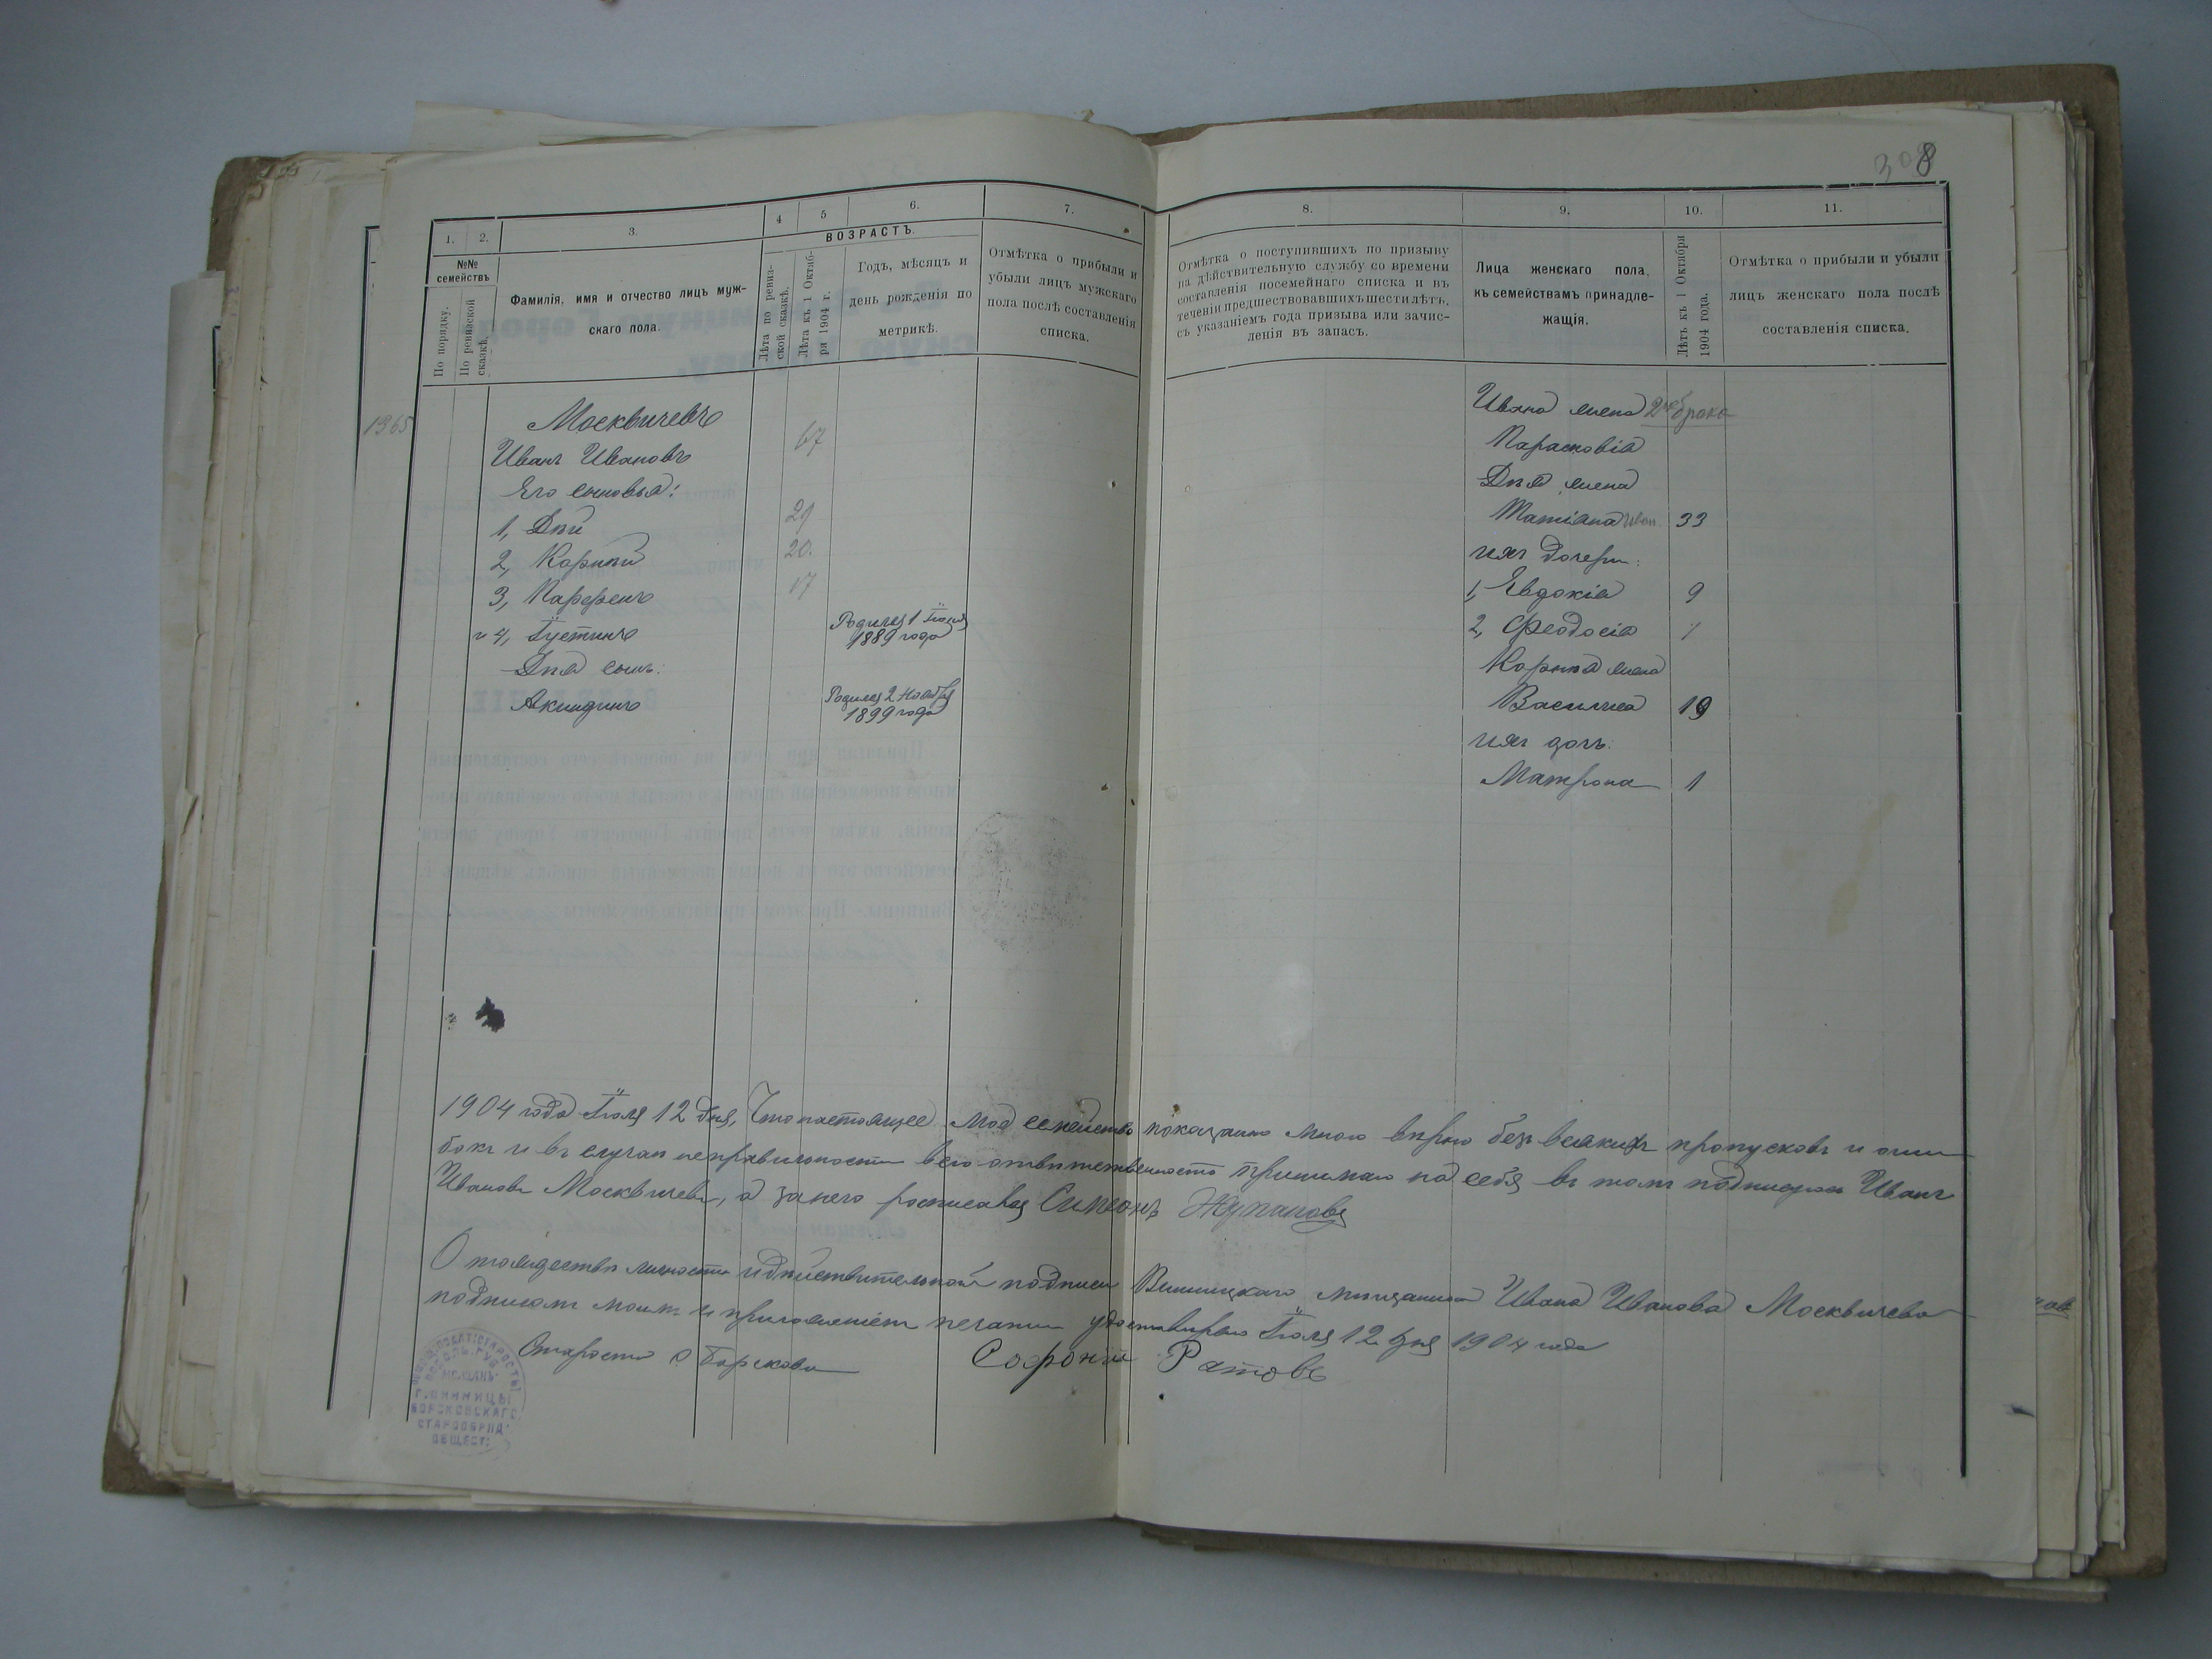 308
1. 2. 3. 4 5 6. 7. 8. 9. 10. 11.
№№ семействъ
По порядку.
По ревизской сказкѣ.
Фамилія, имя и отчество лицъ муж-
скаго пола.
ВОЗРАСТЪ.
Лѣта по ревиз-
ской сказкѣ.
Лѣта къ 1 Октяб-
ря 1904 г.
Годъ, мѣсяцъ и
день рожденія по
метрикѣ.
Отмѣтка о прибыли и
убыли лицъ мужскаго
пола послѣ составленія
списка.
Отмѣтка о поступившихъ по призыву
на дѣйствительную службу со времени
составленія посемейнаго списка и въ
теченіи предшествовавшихъ шести лѣтъ,
съ указаніемъ года призыва или зачис-
ленія въ запасъ.
Лица женскаго пола,
къ семействамъ принадле-
жащія.
Лѣтъ къ 1 Октября
1904 года.
Отмѣтка о прибыли и убыли
лицъ женскаго пола послѣ
составленія списка.
1365
Москвичевъ
Иванъ Ивановъ 67
Его сыновья:
1, Дій 29
2, Карпій 20.
3, Парфенъ 17
и 4, Іустинъ Родился 1 Іюня 1889 года
Дія сынъ:
Акиндинъ Родился 2 Ноября 1899 года
Ивана жена 2го брака
Парасковія
Дія жена
Татіана Иван. 33
ихъ дочери:
1, Евдокія 9
2, Феодосія 1
Карпія жена
Василиса 19
ихъ дочь:
Матрона 1
1904 года Іюля 12 дня, Что настоящее мое семейство показано мною вѣрно безъ всякихъ пропусковъ и оши-
бокъ и въ случаѣ неправильности всю отвѣтственность принимаю на себя въ томъ подписуюсь Иванъ
Ивановъ Москвичевъ, а за него росписався Симеонъ Жупановъ
О тождествѣ личности и дѣйствительной подписи Винницкаго мѣщанина Ивана Иванова Москвичева
подписомъ моимъ и приложеніемъ печати удостовѣряю Іюля 12 дня 1904 года
Староста с Борскова Софоній Ратовъ
СТАРОСТЫ
ПОДОЛЬ. ГУБ.
МѢЩАНЪ
Г. ВИННИЦЫ
БОРСКОВСКАГО
СТАРООБРЯД.
ОБЩЕСТ.